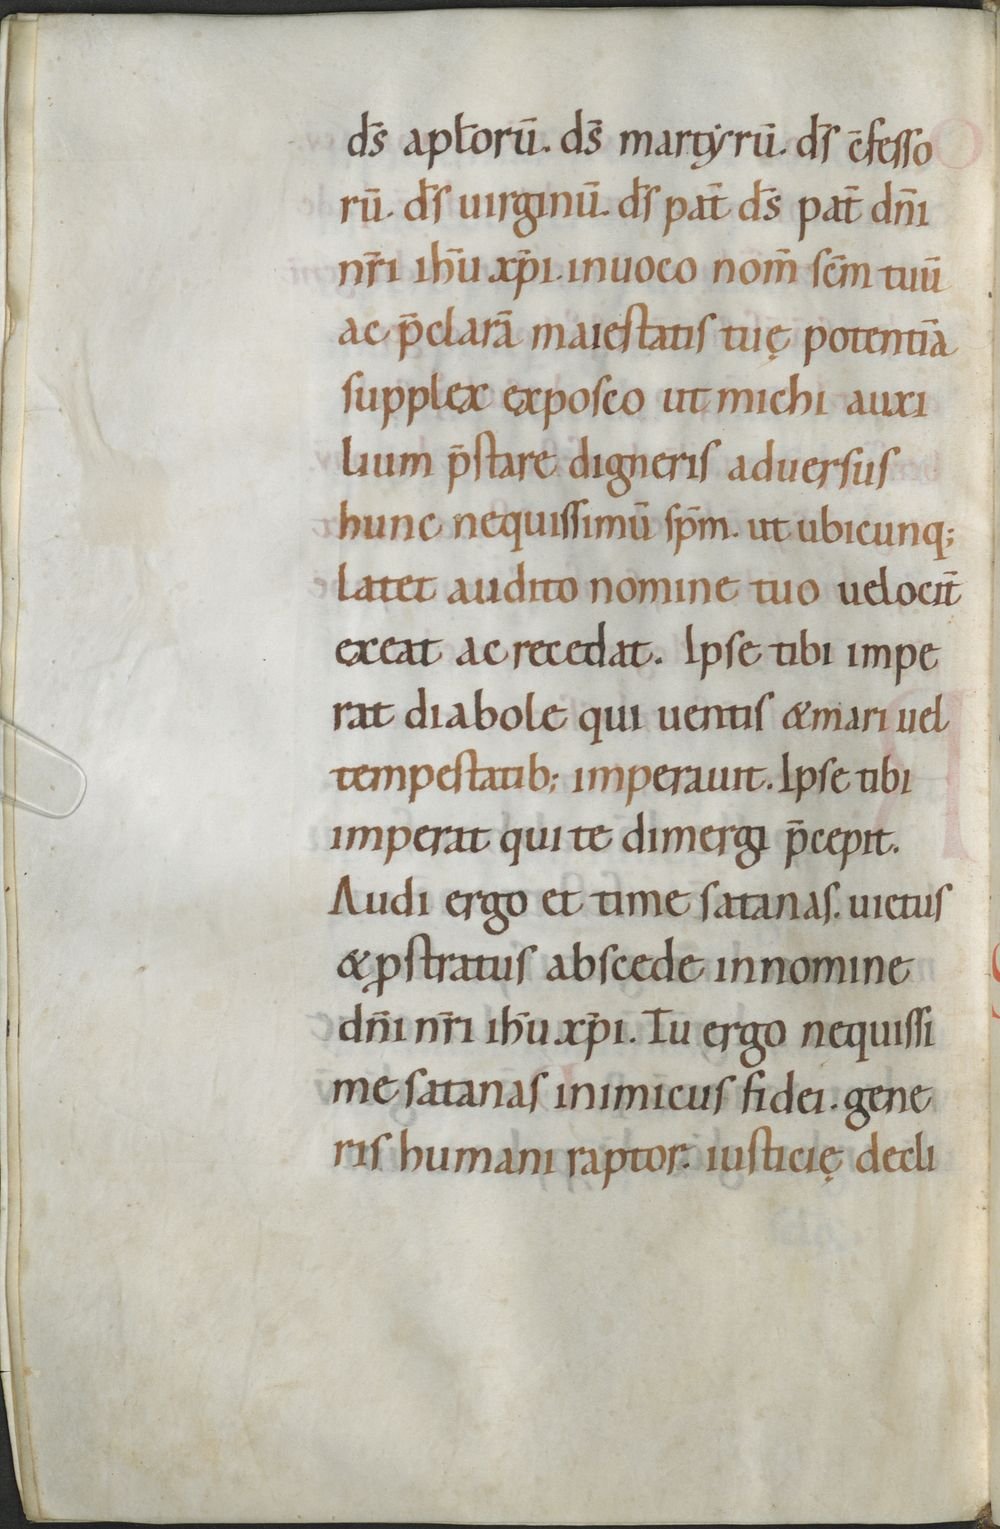 ds̄ apl̄orū. ds̄ martẏrū. ds̄ c̄fesso
rū. ds̄ uirginū. ds̄ pat̄ ds̄ pat̄ dn̄i
nr̄i ih̄u xp̄i. inuoco nom̄ sc̄m tuū
ac p̄clarā maiestatis tuę potentiā
supplex exposco ut michi auxi
lium p̄stare digneris aduersus
hunc nequissimū sp̄m. ut ubicunq;
latet audito nomine tuo uelocit̄
exeat ac recedat. Ipse tibi impe
rat diabole qui uentis & mari uel
tempestatib; imperauit. Ipse tibi
imperat qui te dimergi p̄cepit.
Audi ergo et time satanas. uictus
& ꝓstratus abscede in nomine
dn̄i nr̄i ih̄u xp̄i. Tu ergo nequissi
me satanas inimicus fidei. gene
ris humani raptor. iusticię decli